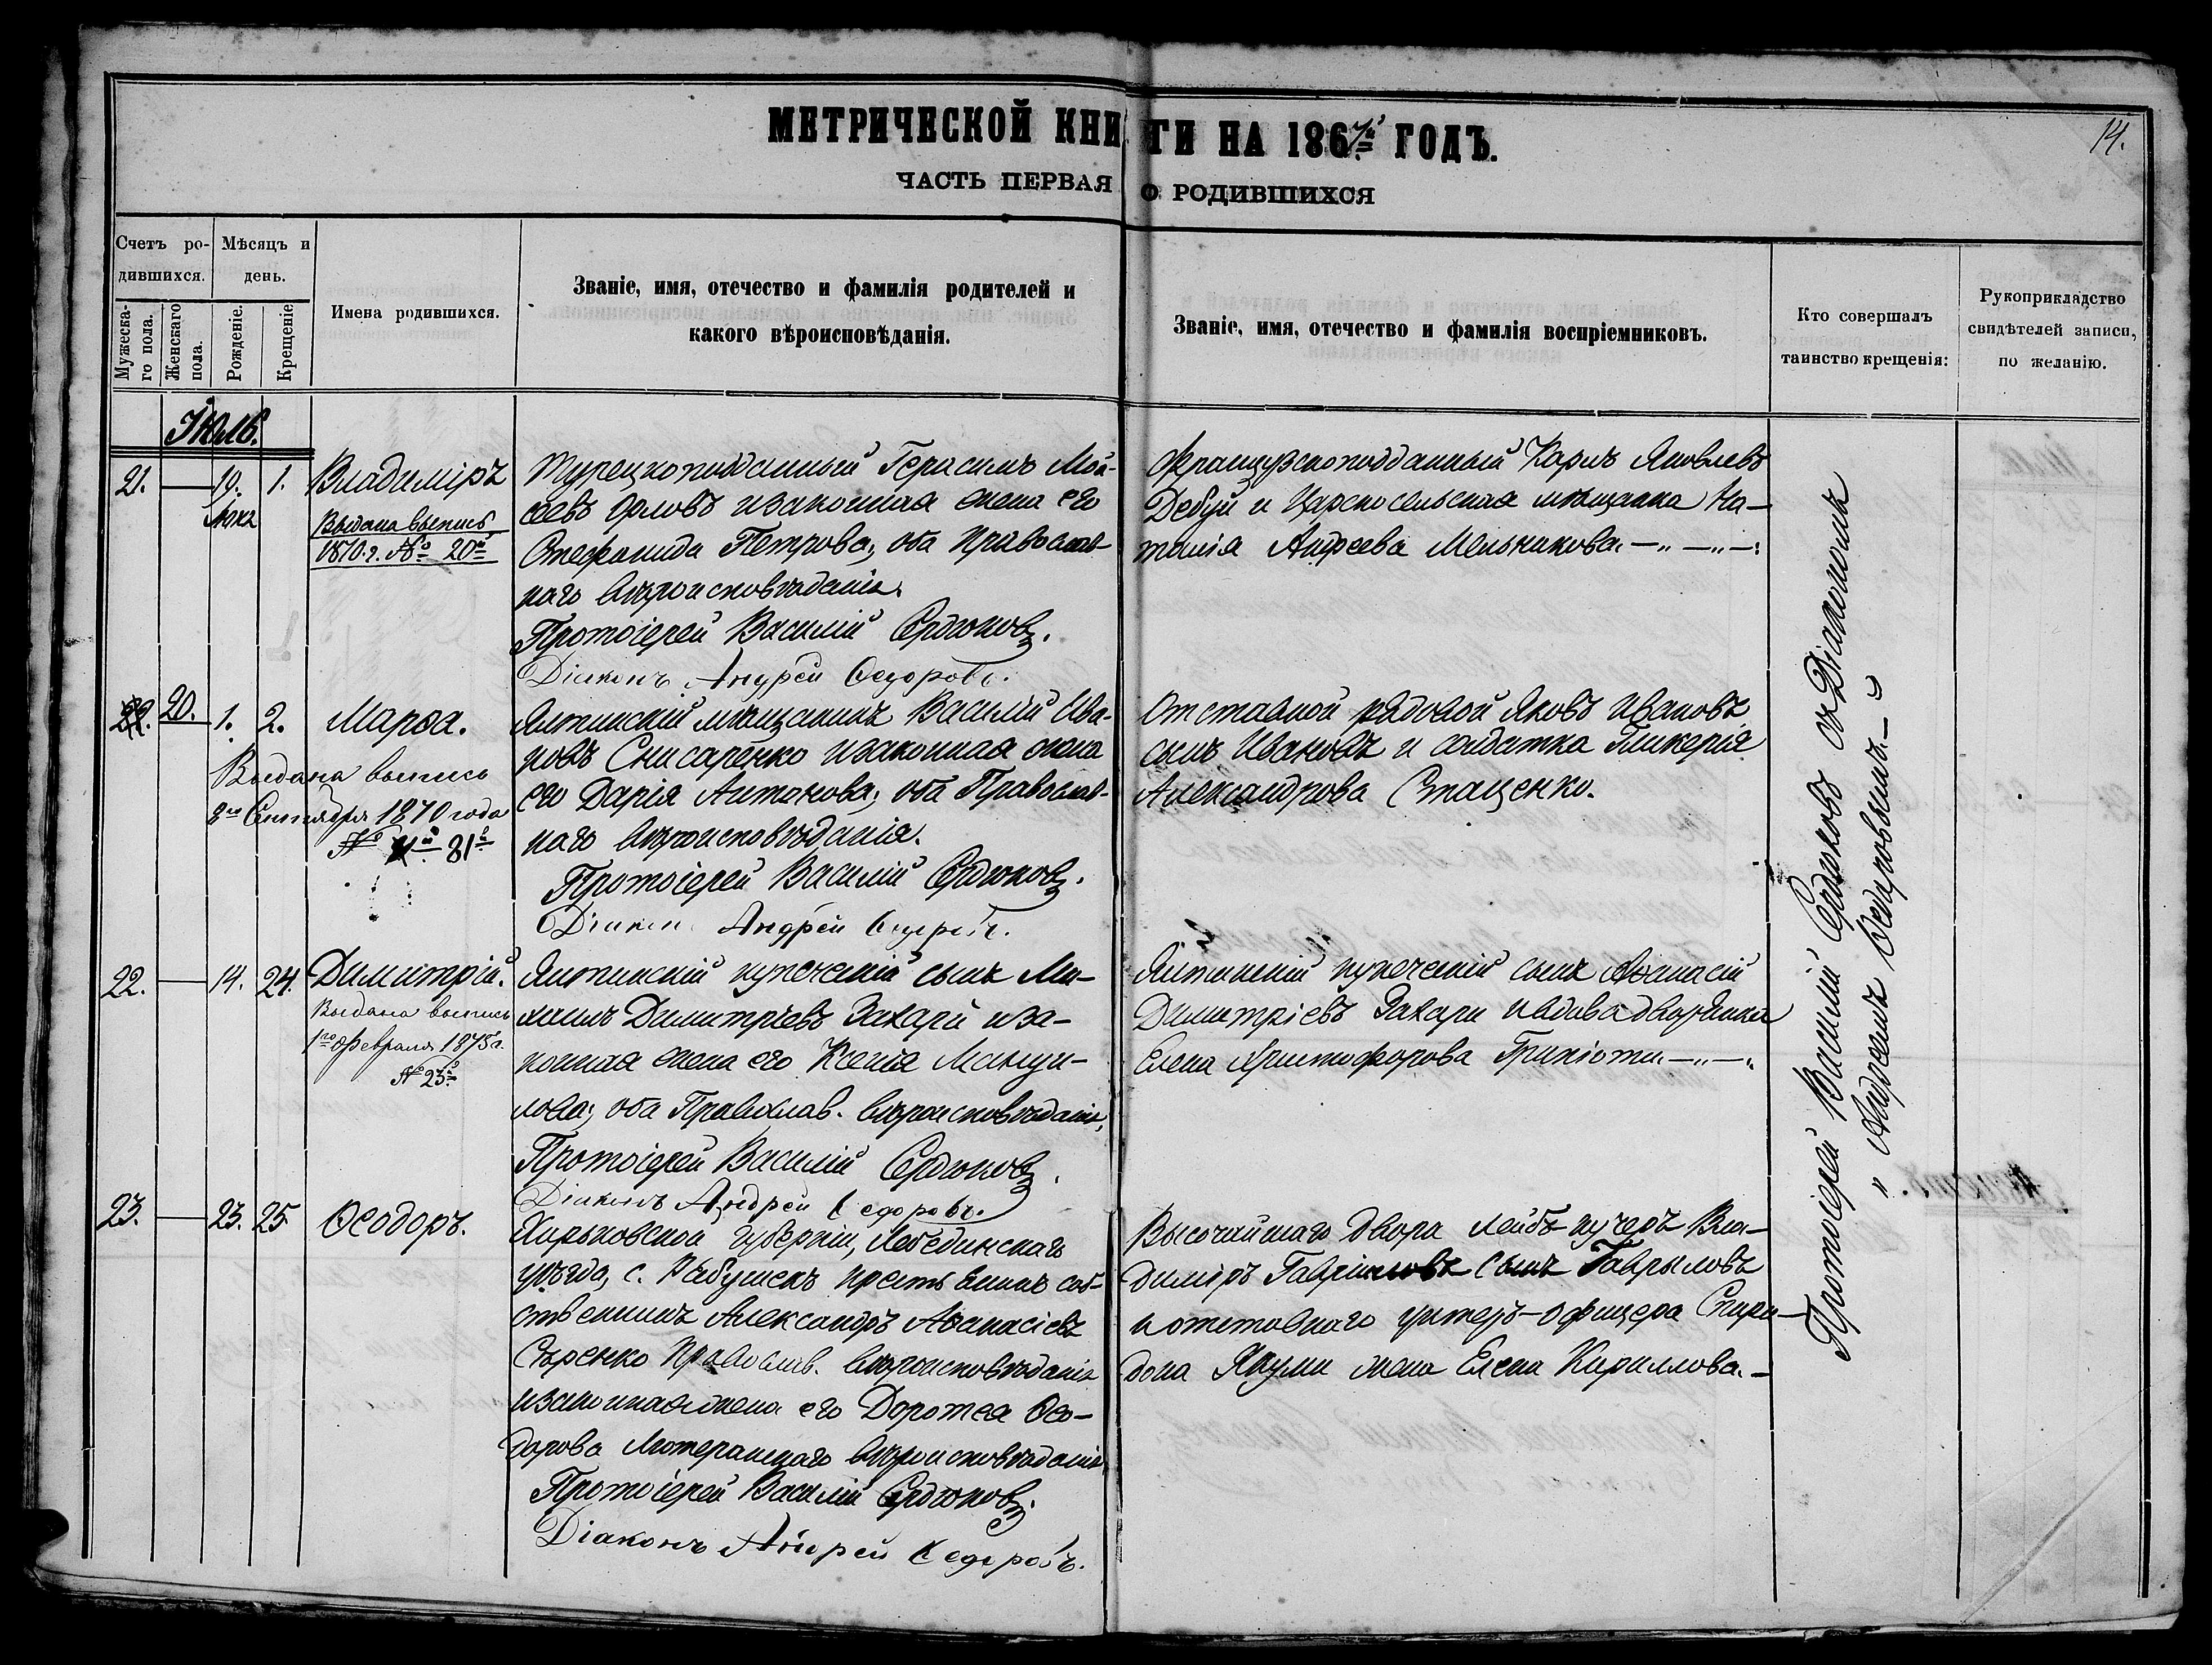 МЕТРИЧЕСКОЙ КНИГИ НА 1867й ГОДЪ.
14.
ЧАСТЬ ПЕРВАЯ О РОДИВШИХСЯ
Счетъ родившихся.
Мужеска-го пола.
Женскаго пола.
Мѣсяцъ и день.
Рожденіе.
Крещеніе
Имена родившихся.
Званіе, имя, отечество и фамилія родителей и
какого вѣроисповѣданія.
Званіе, имя, отечество и фамилія воспріемниковъ.
Кто совершалъ
таинство крещенія:
Рукоприкладство
свидѣтелей записи,
по желанію.
Июль.
21. — 19. 1. Владиміръ
Выдана выпись
1870 г. № 20й
Турецкоподданный Герасимъ Мои-
сеевъ Орловъ и законная жена его
Стефанида Петрова, оба Православ-
наго вѣроисповѣданія.
Протоіерей Василій Сердюковъ.
Діаконъ Андрей Ѳедоровъ.
Французскоподданный Карлъ Яковлевъ
Дебуи и Царскосельская мѣщанка На-
талія Андреева Мельникова.
22. 20. 1. 2. Марѳа.
Выдана выпись
Сентября 1870 года
№ 81й
Ялтинскій мѣщанинъ Василій Ива-
новъ Снисаренко и законная жена
его Дарія Антонова, оба Православ-
наго вѣроисповѣданія.
Протоіерей Василій Сердюковъ.
Діаконъ Андрей Ѳедоровъ.
Отставной рядовой Яковъ Ивановъ
сынъ Ивановъ и солдатка Гликерія
Александрова Стаценко.
22. — 14. 24. Димитрій.
Выдана выпись
1го Февраля 1875 г.
№ 23й
Ялтинскій купеческій сынъ Ми-
хаилъ Димитріевъ Захари и за-
конная жена его Ксенія Мануи-
лова, оба Православ. вѣроисповѣданія,
Протоіерей Василій Сердюковъ.
Діаконъ Андрей Ѳедоровъ.
Ялтинскій купеческій сынъ Аѳанасій
Димитріевъ Захари и вдова дворянка
Елена Христофорова
23. — 23. 25 Ѳеодоръ.
Харьковской губерніи, Лебединскаго
уѣзда, с. Рябушекъ крестьянинъ соб-
ственникъ Александръ Аѳанасіевъ
Сѣренко Православ. вѣроисповѣданія
и законная жена его Доротеа Ѳео-
дорова Лютеранскаго вѣроисповѣданія
Протоіерей Василій Сердюковъ.
Діаконъ Андрей Ѳедоровъ.
Высочайшаго Двора лейбъ-кучеръ Вла-
диміръ Гавриловъ сынъ Гавриловъ
и отставнаго унтеръ-офицера Спири-
дона жена Елена Кириллова.
Протоіерей Василій Сердюковъ съ Діакономъ
Андреемъ Ѳедоровымъ.